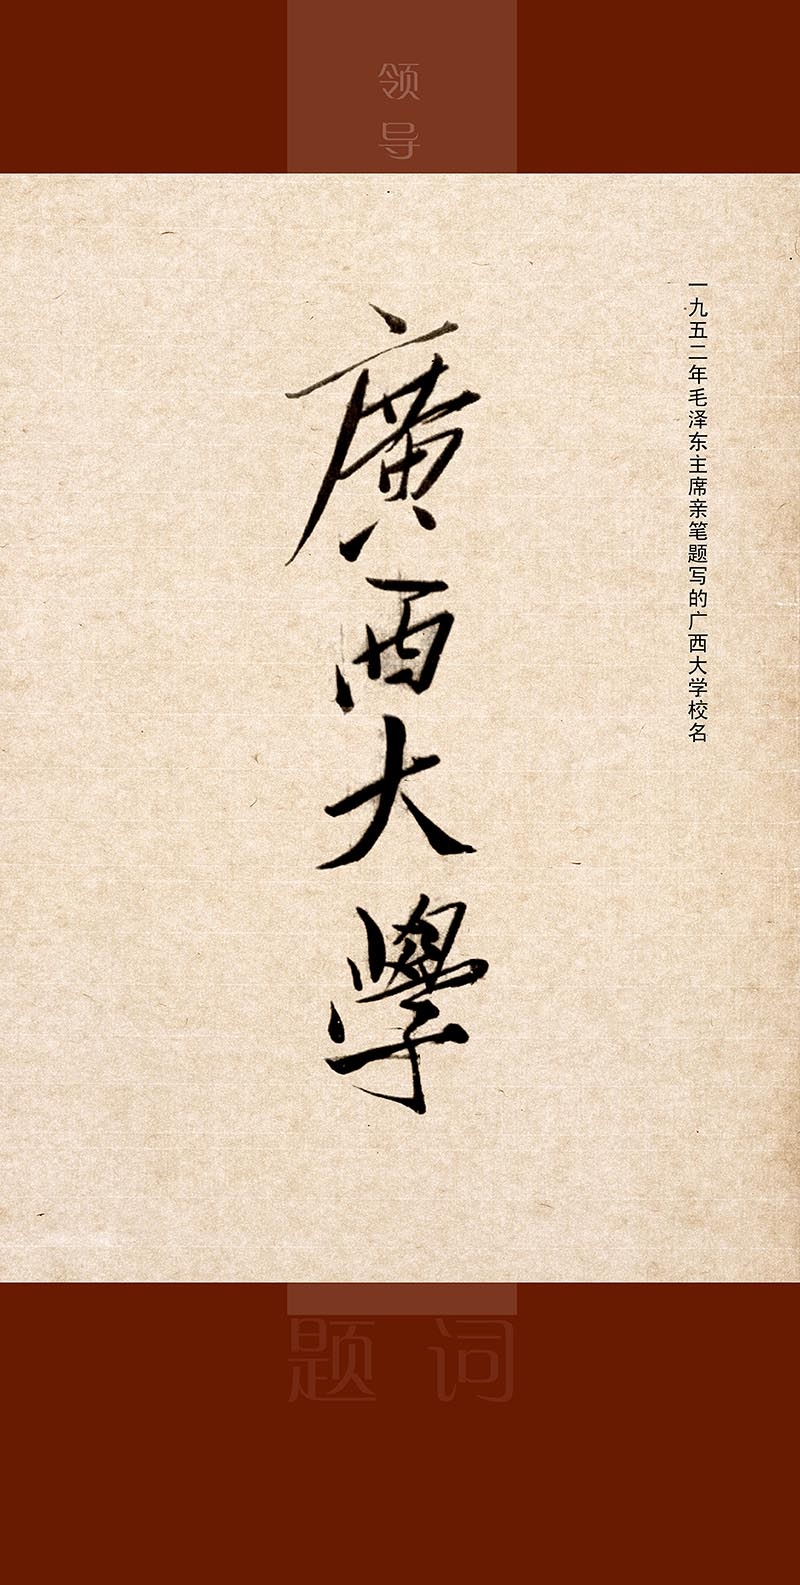 领导
一九五二年毛泽东主席亲笔题写的广西大学校名
廣西大學
题词